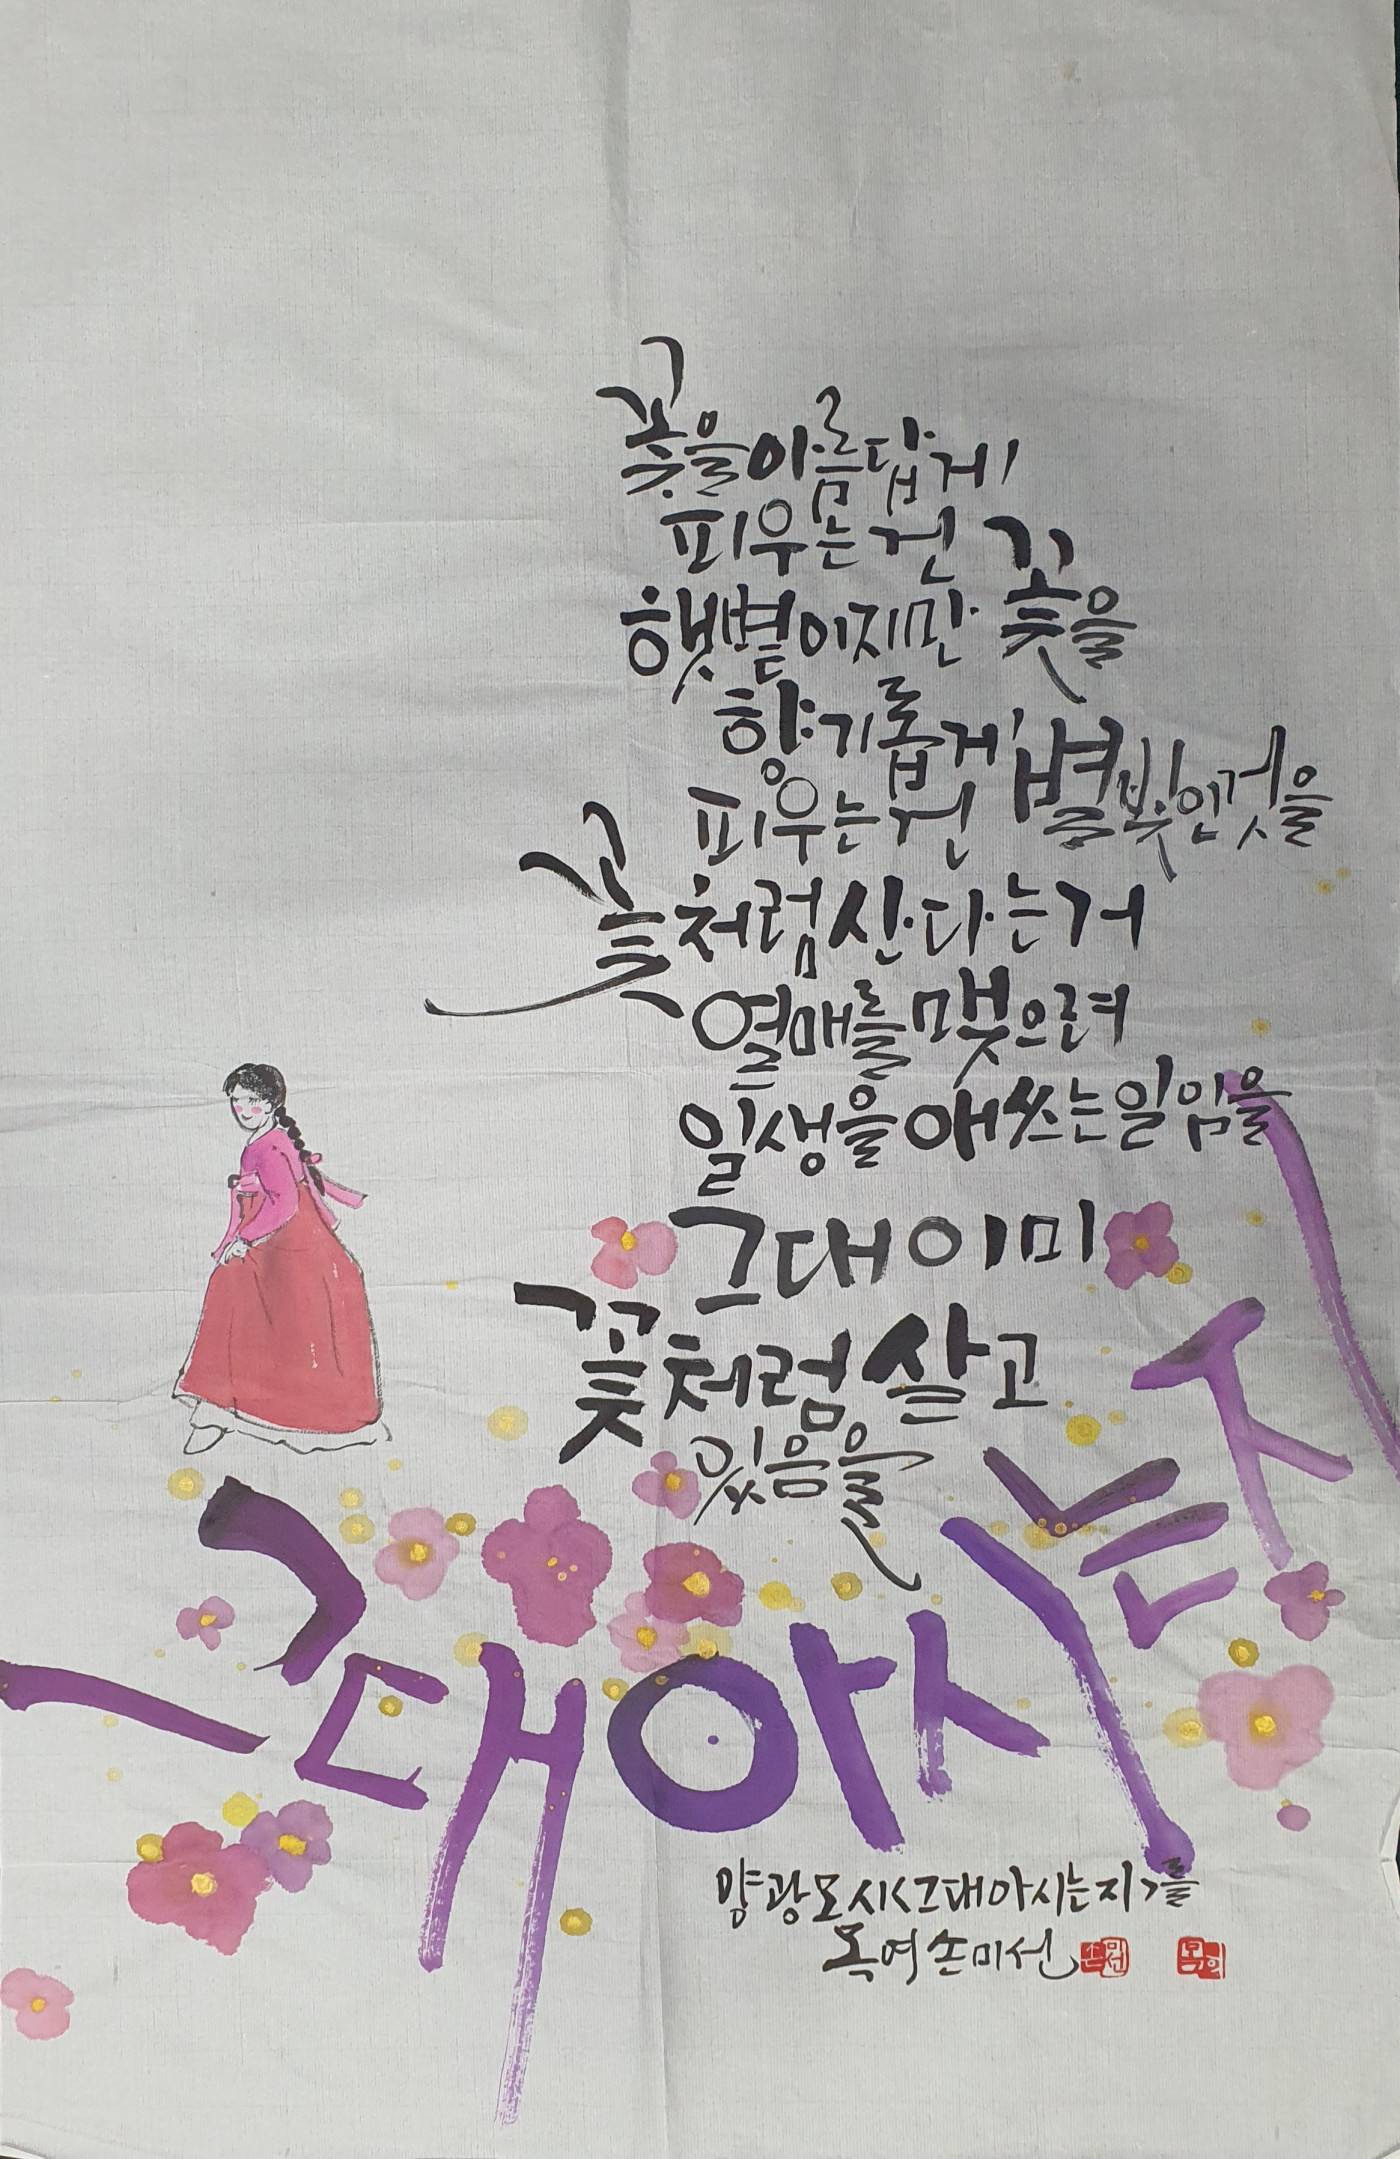 꽃을 아름답게
피우는 건
햇볕이지만 꽃을
향기롭게
피우는 건 별빛인 것을
꽃처럼 산다는 거
열매를 맺으려
일생을 애쓰는 일임을
그대 이미
꽃처럼 살고
있음을
그대 아시는지
양광모 시 <그대 아시는지>를
손미선